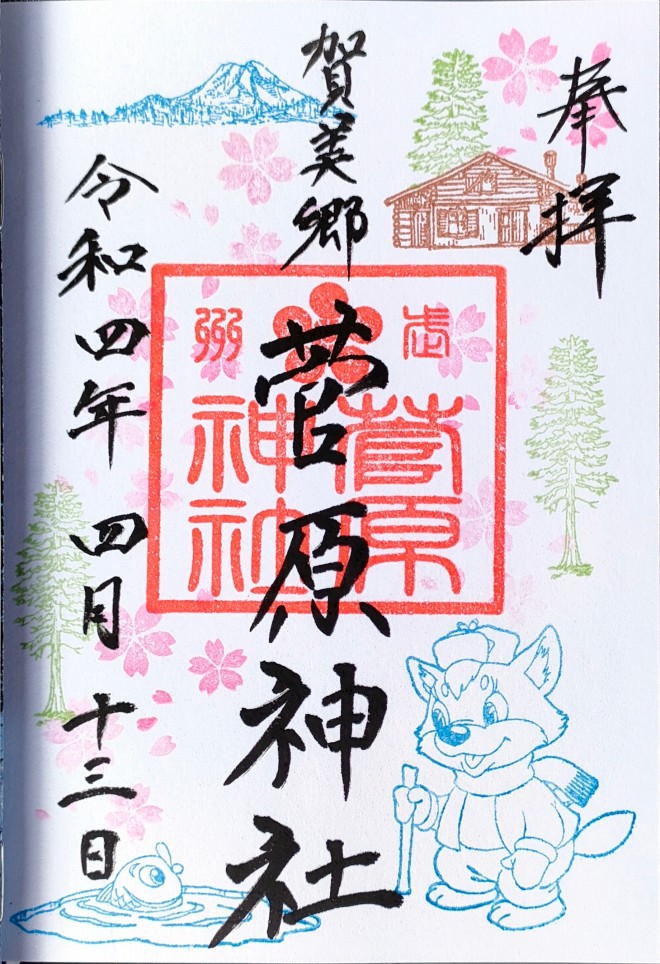 奉拝
賀美郷
菅原神社
令和四年 四月 十三日
武州
菅原
神社